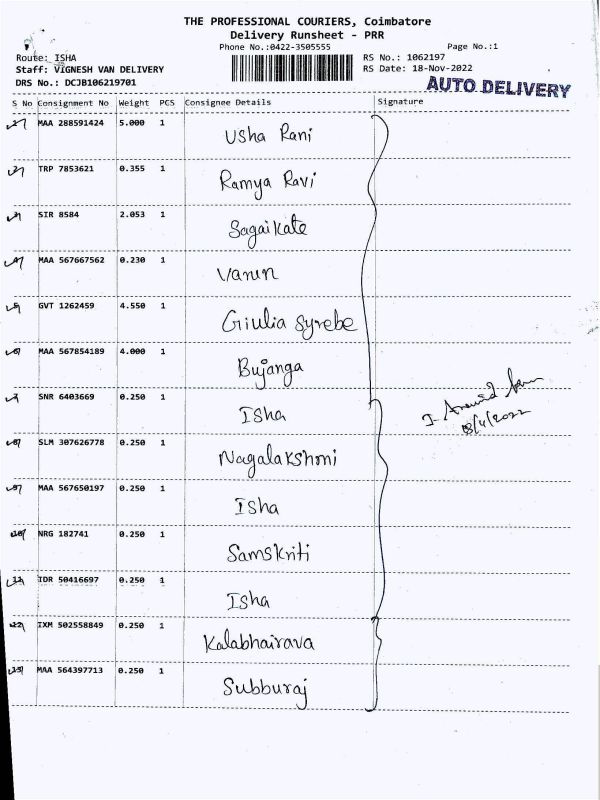 THE PROFESSIONAL COURIERS, Coimbatore
Delivery Runsheet - PRR
Phone No.:0422-3505555 Page No.:1
Route: ISHA RS No.: 1062197
Staff: VIGNESH VAN DELIVERY RS Date: 18-Nov-2022
DRS No.: DCJB106219701 AUTO DELIVERY
S No Consignment No Weight PCS Consignee Details Signature
1 MAA 288591424 5.000 1 Usha Rani
2 TRP 7853621 0.355 1 Ramya Ravi
3 SIR 8584 2.053 1 Sagaikate
4 MAA 567667562 0.230 1 Varun
5 GVT 1262459 4.550 1 Giulia Syrebe
6 MAA 567854189 4.000 1 Bujanga
7 SNR 6403669 0.250 1 Isha
I. Aravind
18/11/2022
8 SLM 307626778 0.250 1 Nagalakshmi
9 MAA 567650197 0.250 1 Isha
10 NRG 182741 0.250 1 Samskriti
11 IDR 50416697 0.250 1 Isha
12 IXM 502558849 0.250 1 Kalabhairava
13 MAA 564397713 0.250 1 Subburaj